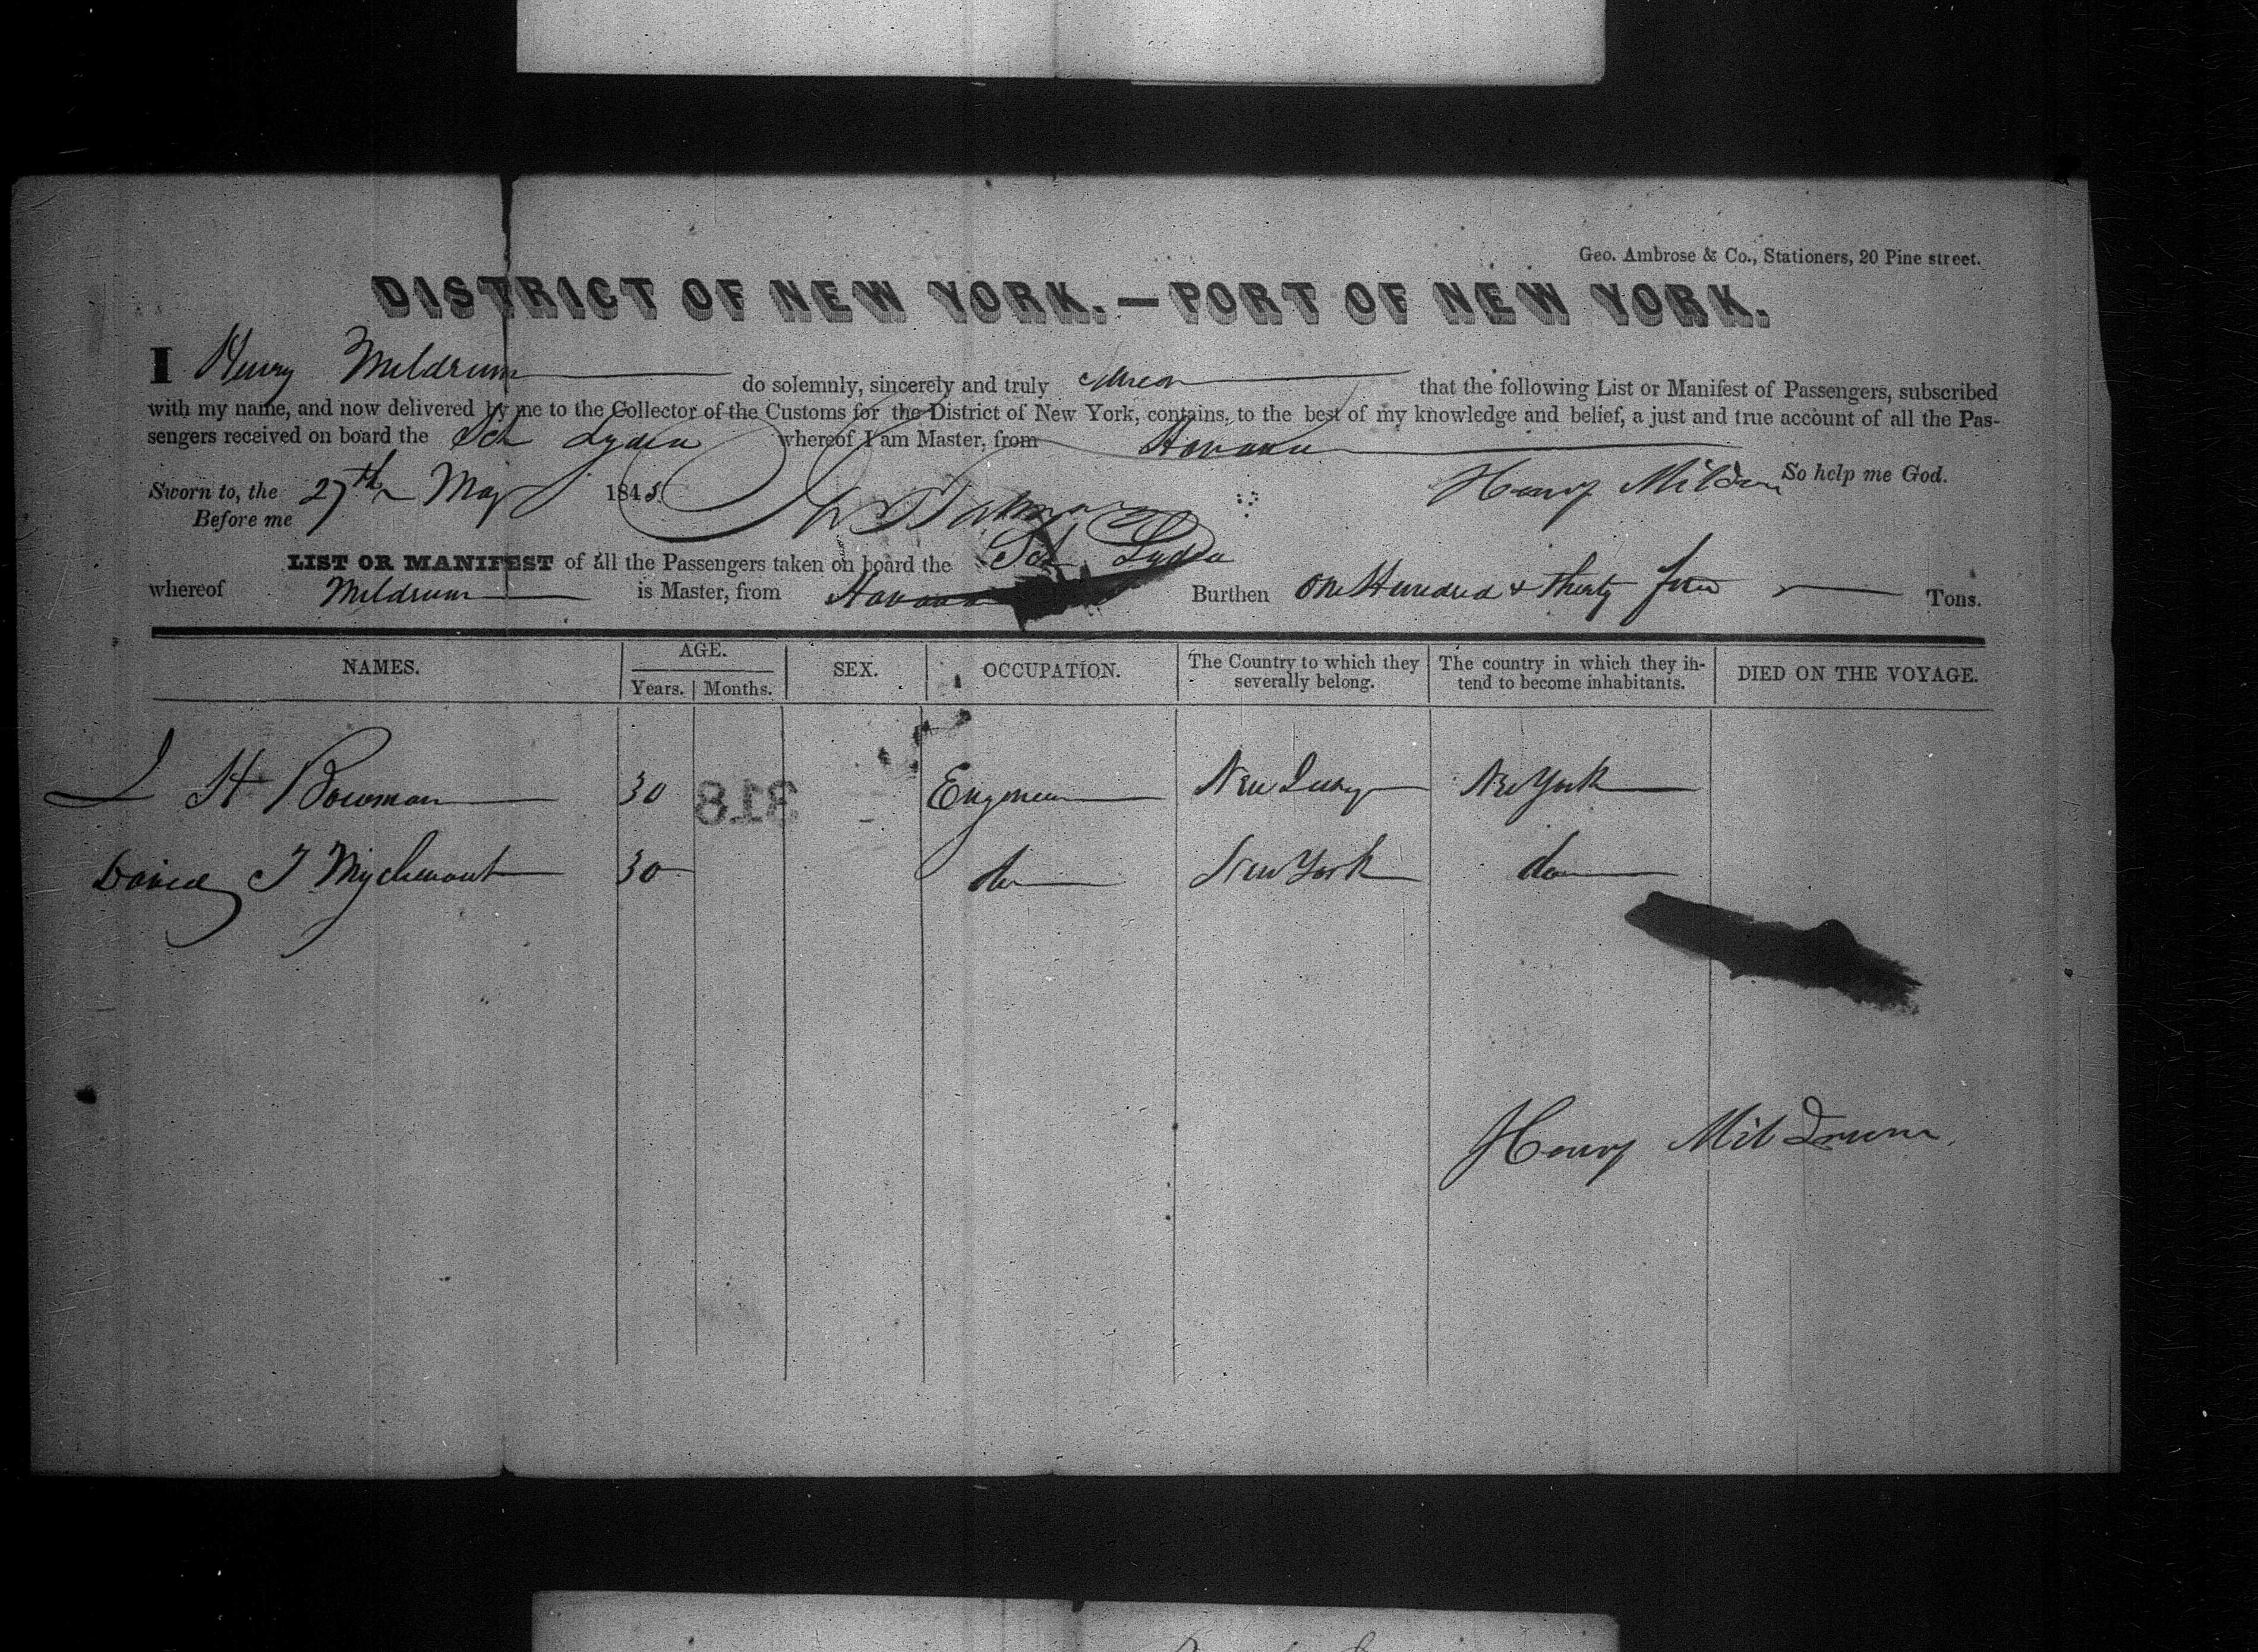 Geo. Ambrose & Co., Stationers, 20 Pine street.
DISTRICT OF NEW YORK.—PORT OF NEW YORK.
I Henry Meldrum do solemnly, sincerely and truly swear that the following List or Manifest of Passengers, subscribed
with my name, and now delivered by me to the Collector of the Customs for the District of New York, contains, to the best of my knowledge and belief, a just and true account of all the Pas-
sengers received on board the Sch Lydia whereof I am Master, from Havana
So help me God.
Sworn to, the 27th May 1845 Henry Mildrum
Before me
LIST OR MANIFEST of all the Passengers taken on board the Sch Lydia
whereof Meldrum is Master, from Havana Burthen One Hundred & Thirty four Tons.
NAMES. AGE. SEX. OCCUPATION. The Country to which they severally belong. The country in which they intend to become inhabitants. DIED ON THE VOYAGE.
Years. Months.
H Bowman 30 Engineer New Jersey New York
David T 30 do New York do
318
Henry Mildrum